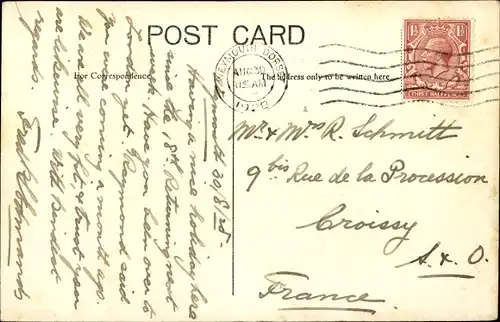 POST CARD
For Correspondence
The address only to be written here
WEYMOUTH DORSET
AUG 30
1928
THREE HALFPENCE
Weymouth 30/8/28.
Having a nice holiday here
since the 18th. Returning next
week. Have you been over to
London yet. Raymond said
you were coming a month ago.
We are all very fit & trust you
are likewise. With kindest
regards.
Mr & Mrs R. Schmitt
9 bis Rue de la Procession
Croissy
S. & O.
France